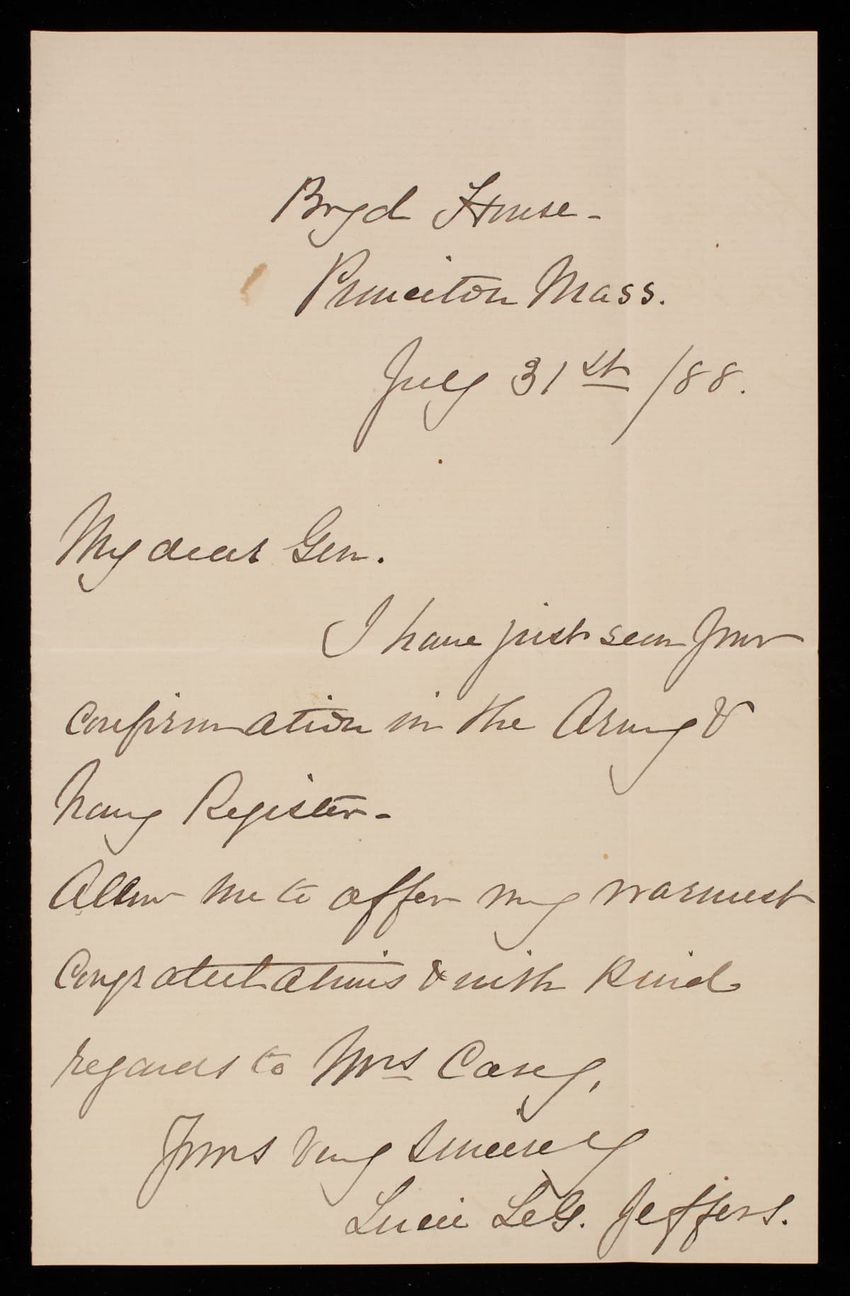 Boyd House -
Princeton Mass.
July 31st /88.
My dear Gen.
I have just seen your
confirmation in the Army &
Navy Register -
Allow me to offer my warmest
congratulations & with kind
regards to Mrs Casey,
Yours Very Sincerely
Lucie LeG. Jeffers.